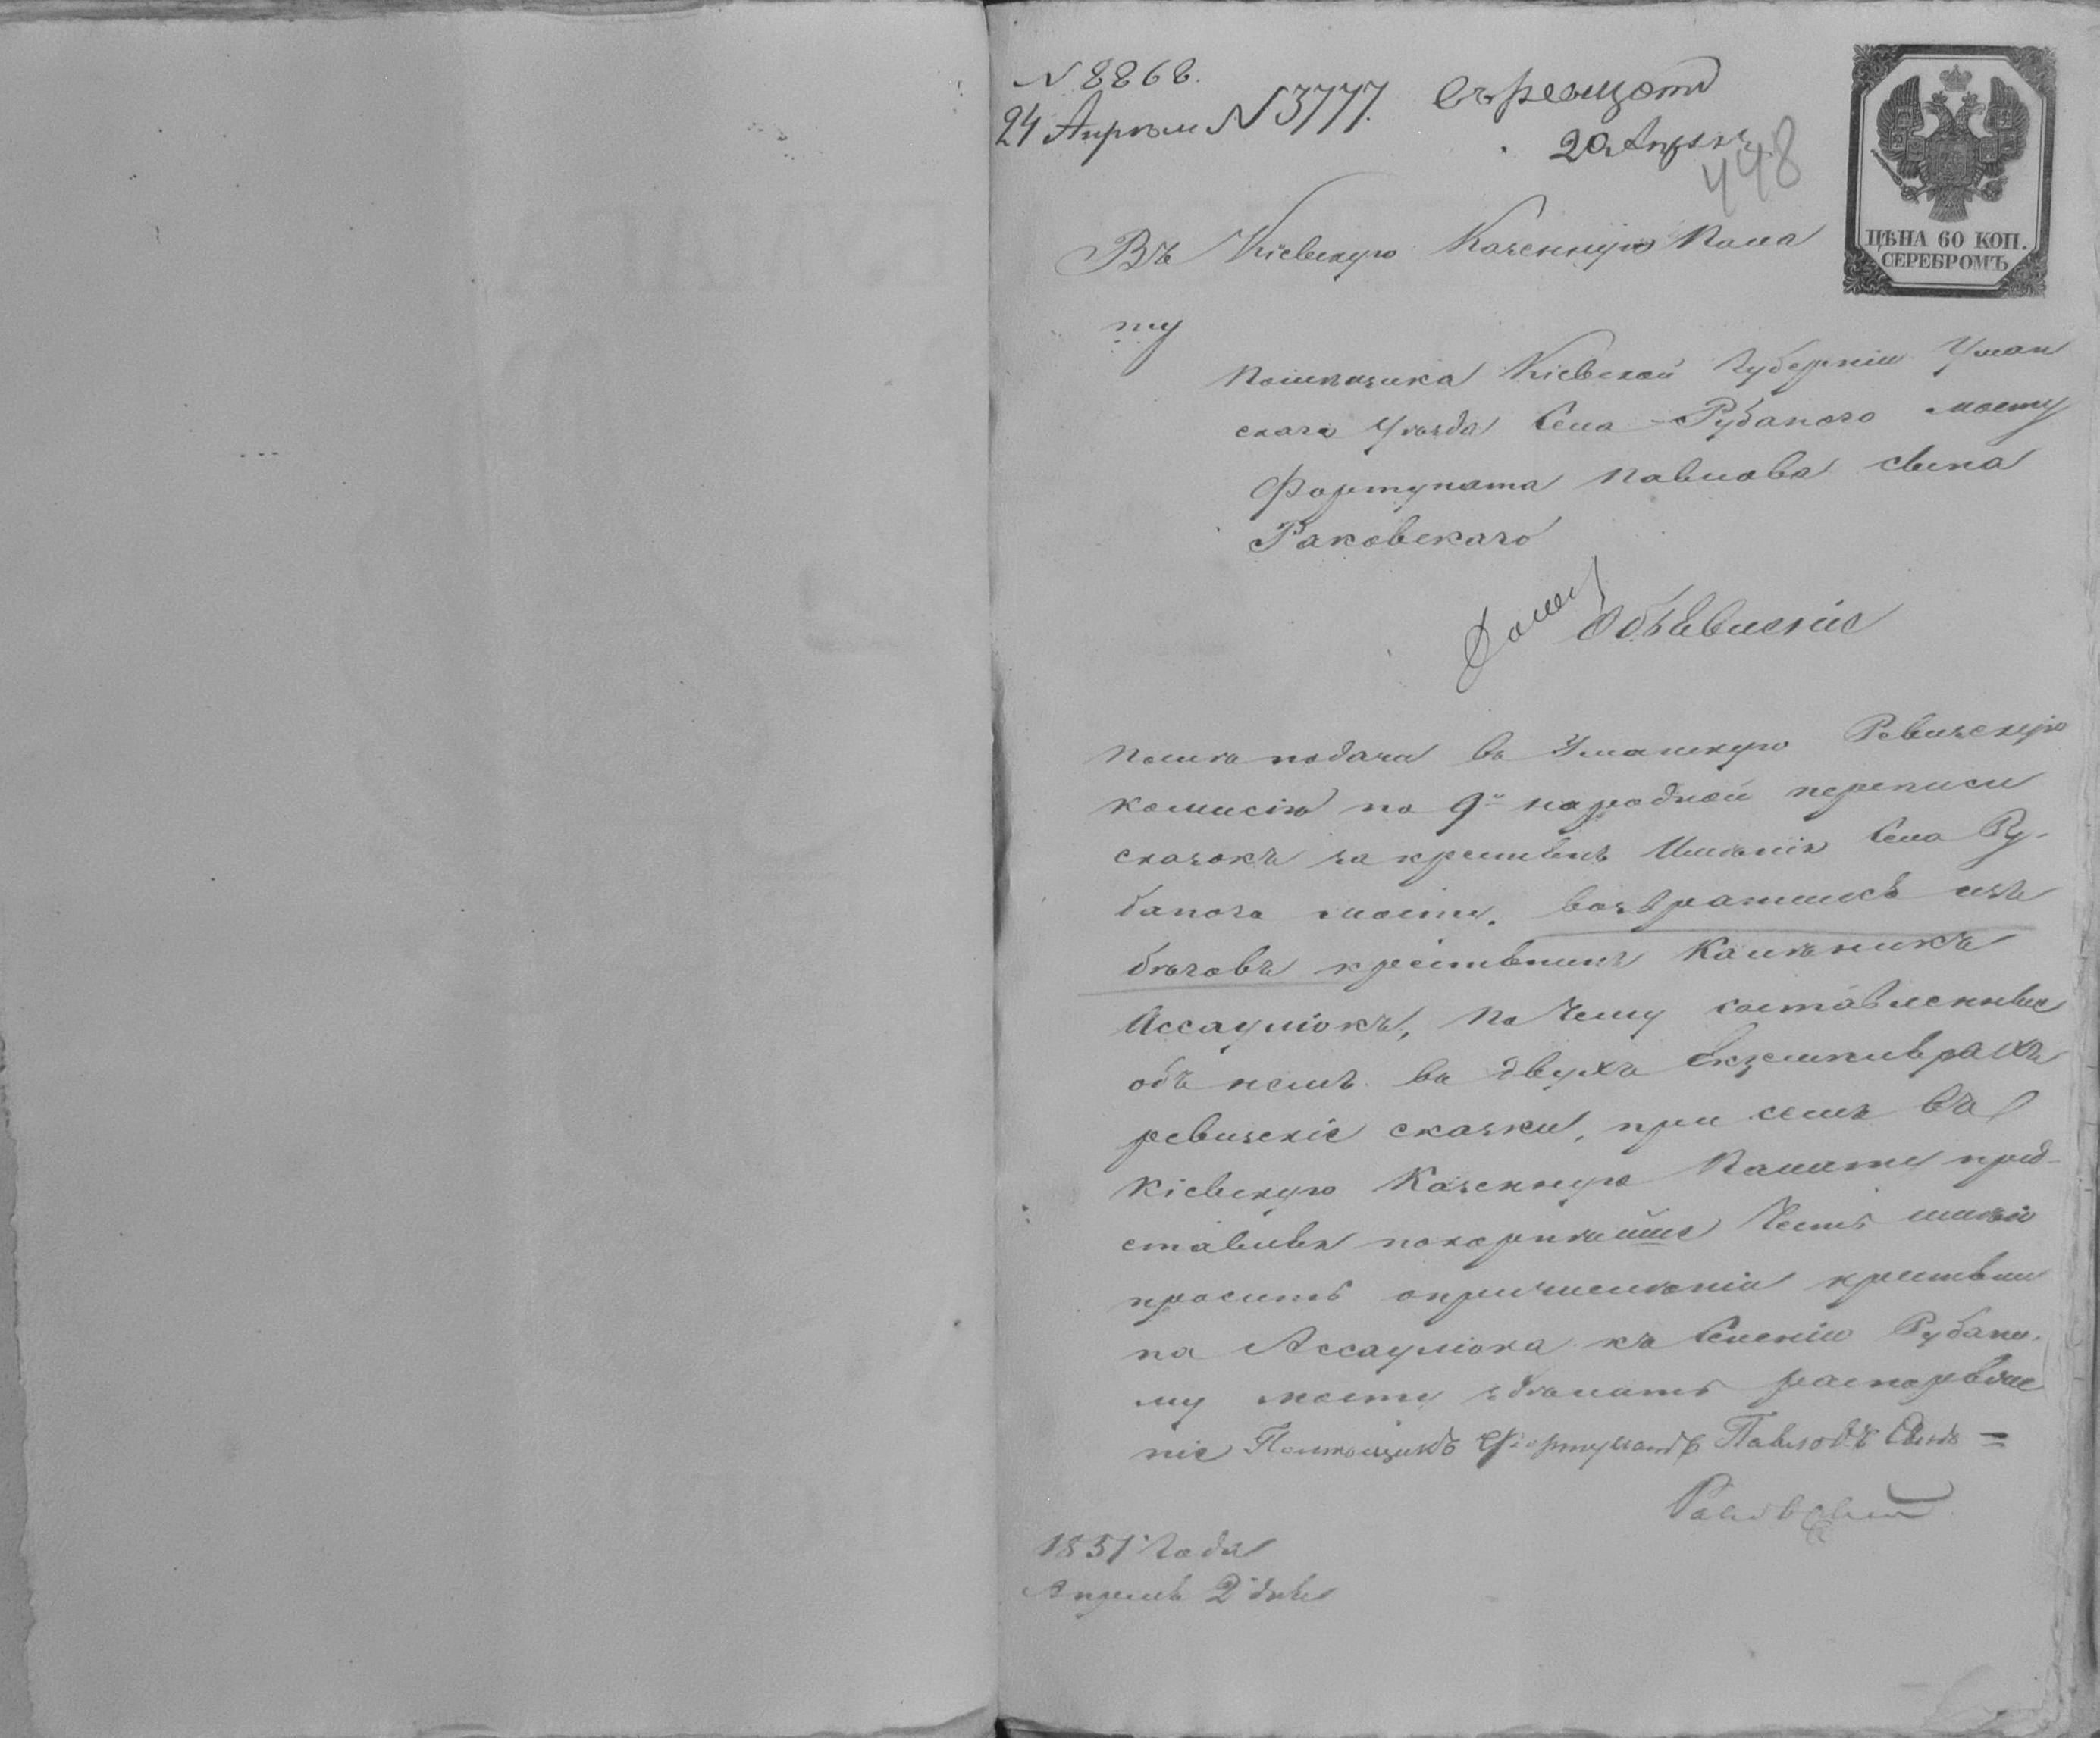 N 8868.
24 Апреля N 3777.
20 Апреля
448
ЦѢНА 60 КОП.
СЕРЕБРОМЪ
Въ Кіевскую Казенную Пала
ту
Помѣщика Кіевской Губерніи Уман
скаго Уѣзда Села Рубаного мосту
Фортуната Павлова сына
Раковскаго
Объявленіе
После подачи въ Уманскую Ревизскую
комисію по 9й народной переписи
сказокъ за крестьянъ Имѣнія Села Ру-
баного мосту, возвратился изъ
бѣговъ крестьянинъ Калѣникъ
Ассаулюкъ, По чему составленные
объ немъ въ двухъ Екземплярахъ
ревизскіе сказки, при семъ въ
Кіевскую Казенную Палату пред-
ставляя покорнѣйше Честь имѣю
просить опричисленіи крестьяни
на Ассаулюка къ Селенію Рубано-
му мосту здѣлать распоряже
ніе Помѣщикъ Фортунатъ Павловъ Сынъ =
Раковский
1851 Года
Апреля 2 дня